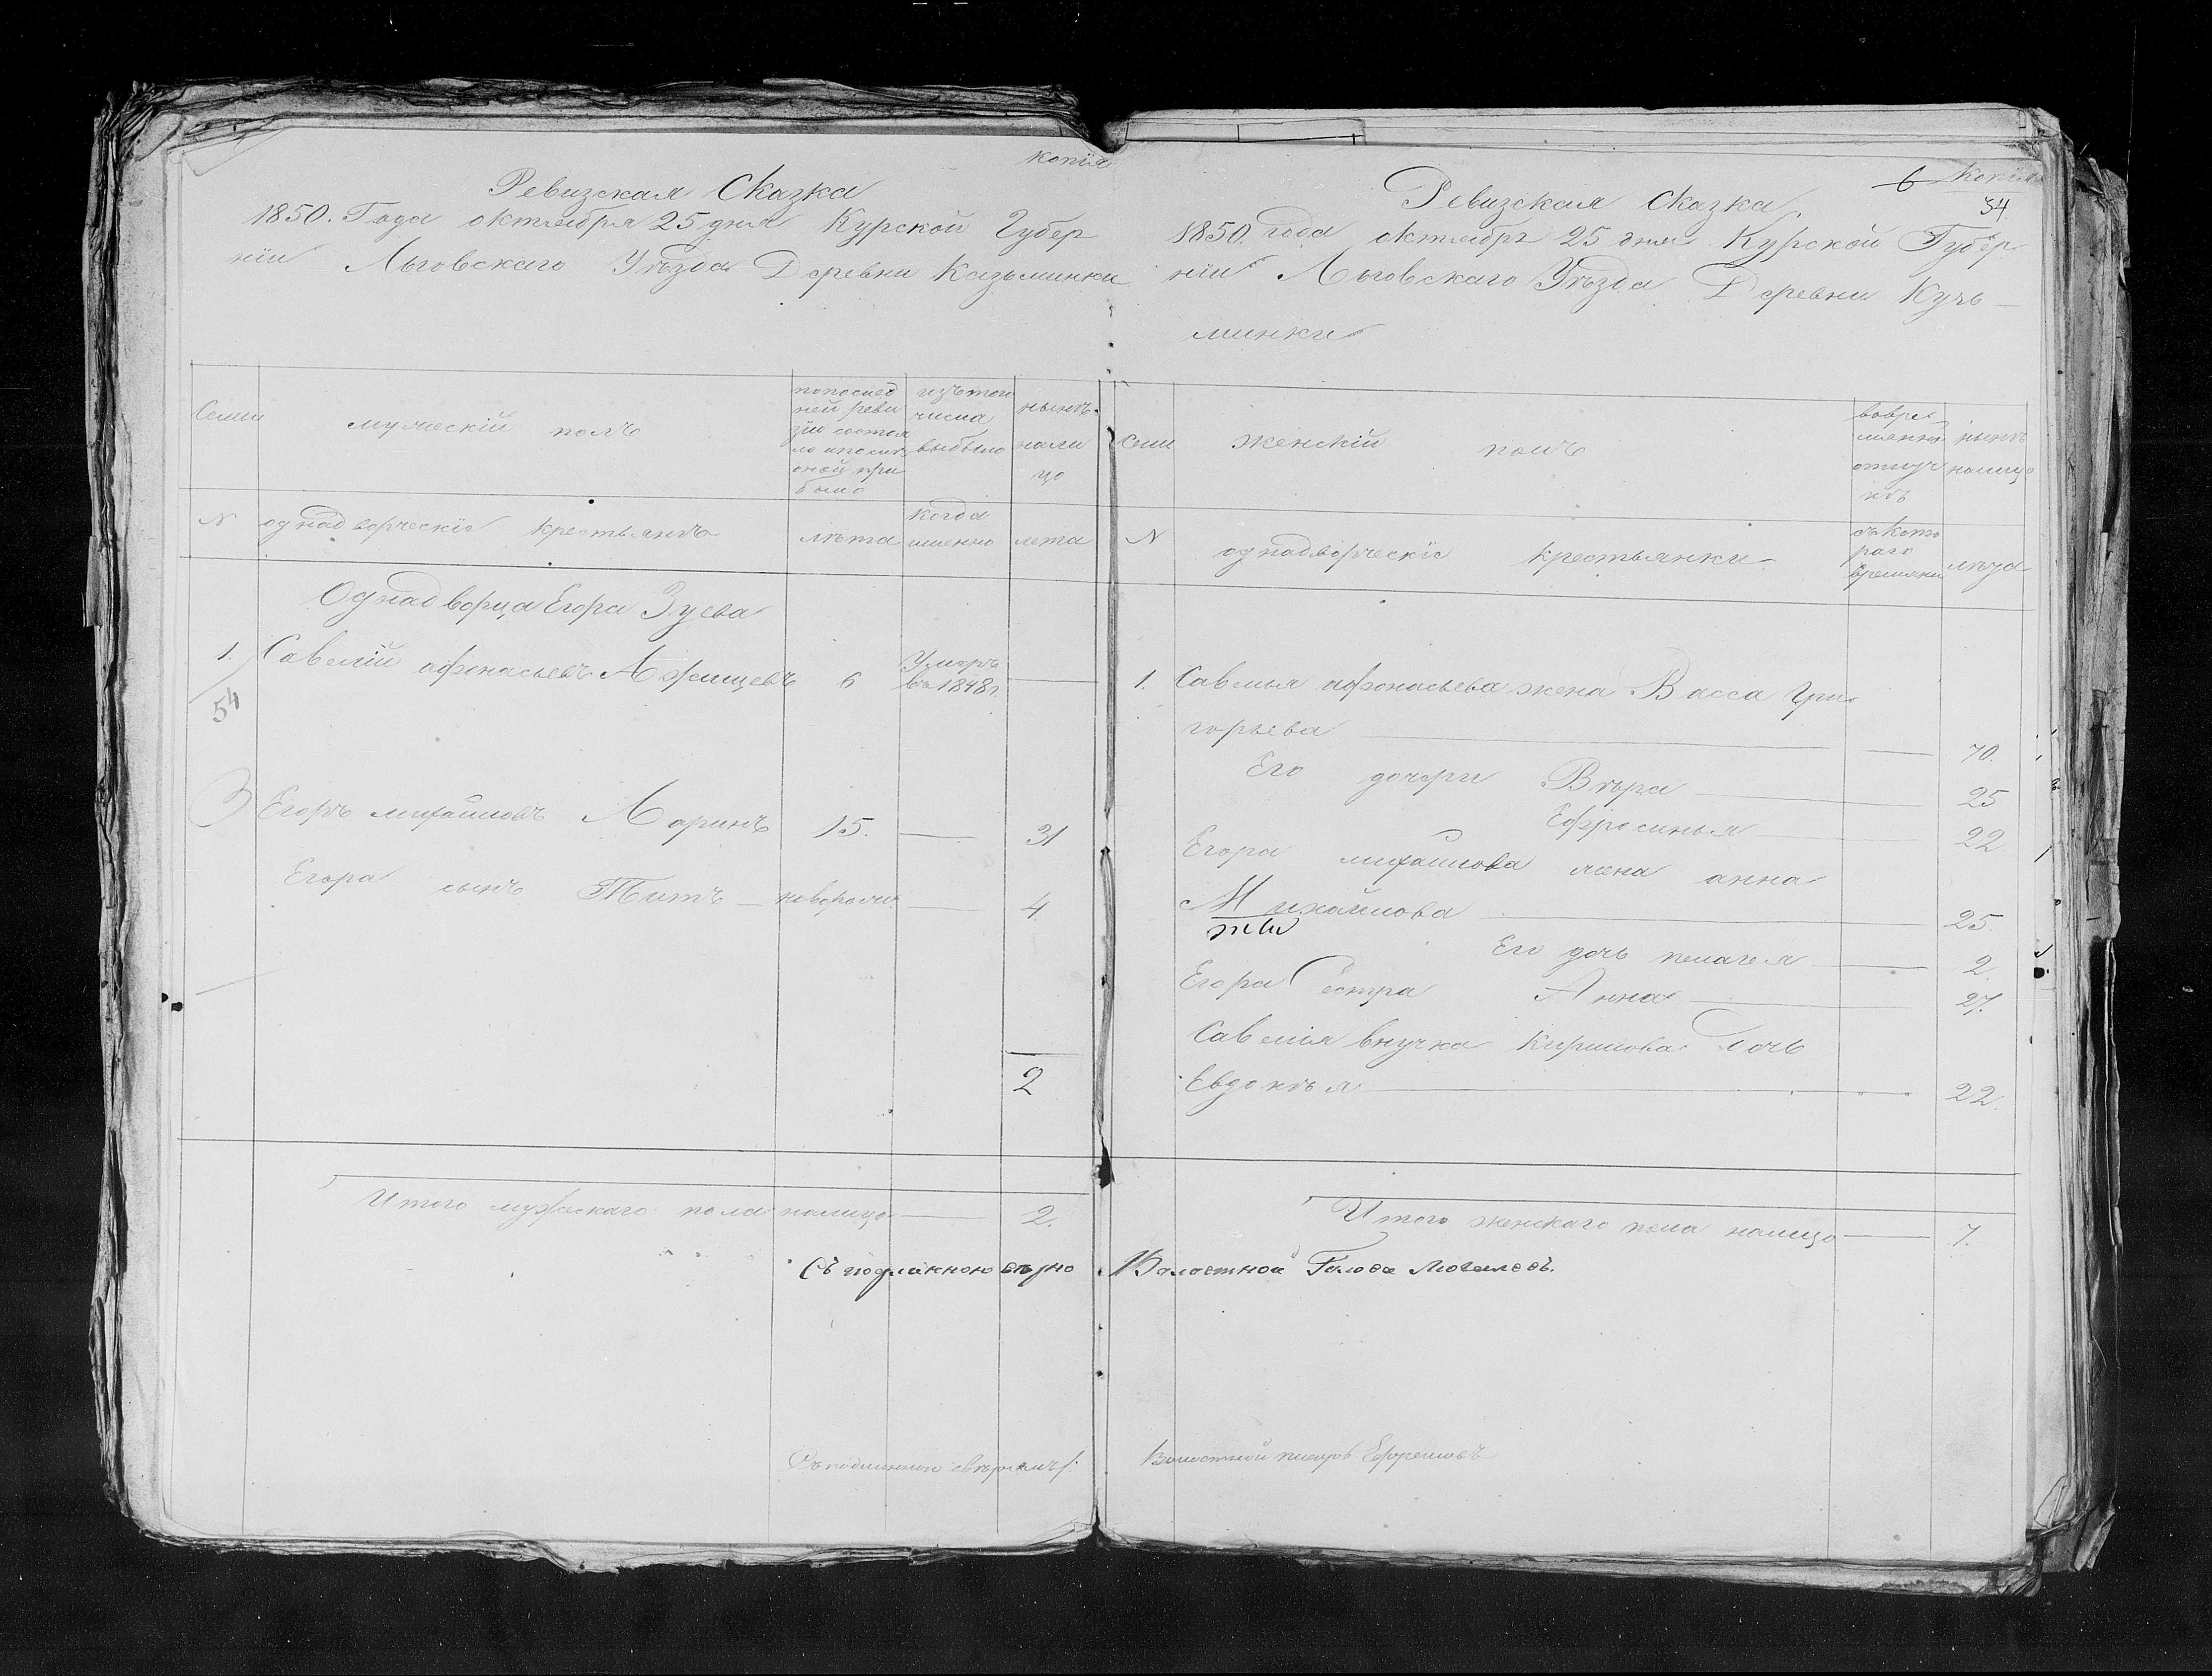 копія
Ревизская Сказка
1850. Года октября 25 дня Курской Губер
ніи Льговскаго Уѣзда Деревни Казьминки
Семьи
мужескій полъ
попослед
ней реви
зіи состоя
ло ипослѣ
оной при
было
изътого
числа
выбыло
нынѣ
нали
цо
N
однадворческіе крестьянѣ
лѣта
когда
именно
лета
Однадворца Егора Зуева
1. Савелій афонасьевъ 6 Умеръ
въ 1848 г.
54
3 Егоръ михайловъ Ларинъ 15. 31
Егора сынъ Титъ — новорож. 4
2
Итого мужескаго пола налицо 2.
Съ подлинною верно
Съ подлинною сверялъ
6 Копія
34
Ревизская Сказка
1850. года октября 25 дня Курской Губер
ніи Льговскаго Уѣзда Деревни Кузь-
минки
Семи
женскій полъ
вовре
менно
отлуч
кѣ
нынѣ
налицо
N
однадворческіе крестьянки
съ кото
раго
времяни
лѣта
1. Савелья афонасьева жена Васса Гри
горьева 70.
Его дочери Вѣра 25
Ефросинья 22
Егора михайлова жена анна
Михайлова 25.
Его дочь пелагея 2.
Егора Сестра Анна 27.
Савелія внучка Кирилова дочь
Евдокѣя 22.
Итого женскаго пола налицо 7.
Волостной Голова
Волостной писарь Ефремовъ